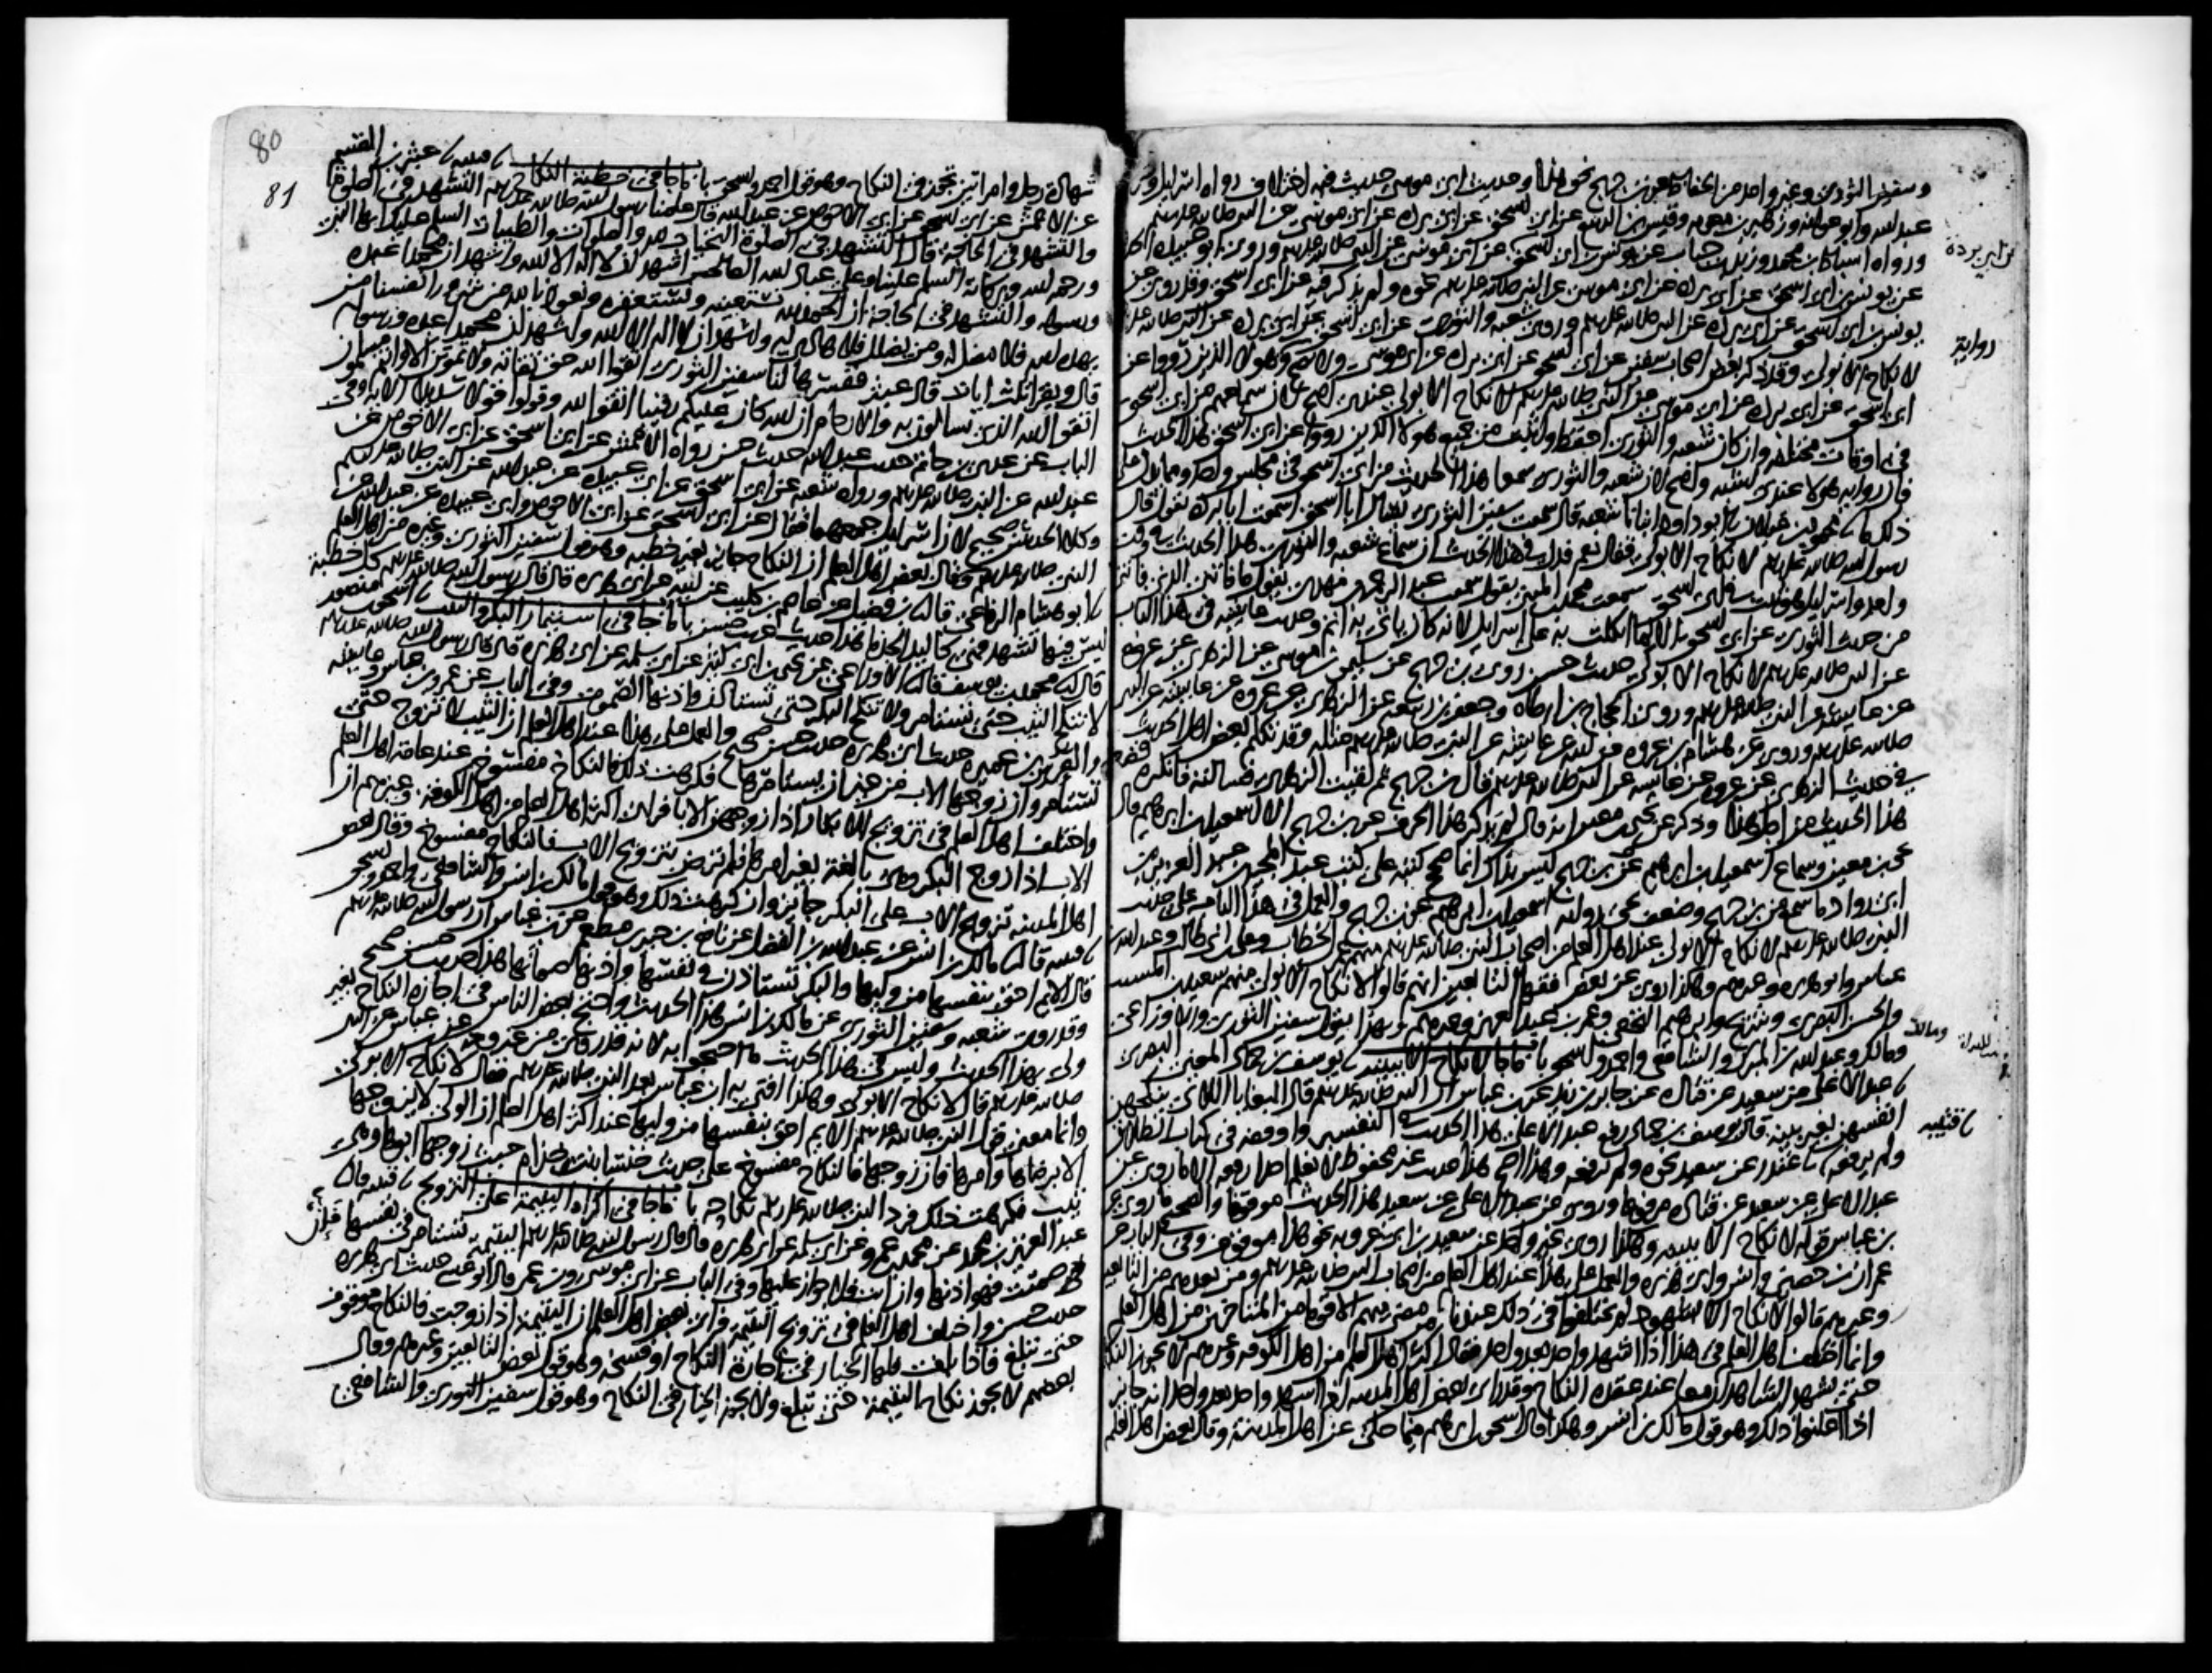 وسفين الثوري وغير واحد من الحفاظ عن بن جريج نحو هذا وحديث ابي موسى حديث فيه اختلاف رواه اسرايل وشريك بن
عبد الله وابو عوانه وزهير بن معويه وقيس بن الربيع عن ابي اسحق عن ابي برده عن ابي موسى عن النبي صلى الله عليه وسلم
ورواه اسباط بن محمد وزيد بن حباب عن يونس بن ابي اسحق عن ابي موسى عن النبي صلى الله عليه وسلم وروى ابو عبيده الحداد
عن يونس بن ابي اسحق عن ابي برده عن ابي موسى عن النبي صلى الله عليه وسلم نحوه ولم يذكر فيه عن ابي اسحق وقد روي عن
يونس بن ابي اسحق عن ابي برده عن النبي صلى الله عليه وسلم وروى شعبه والثوري عن ابي اسحق عن ابي برده عن النبي صلى الله عليه
لا نكاح الا بولي وقد ذكر بعض اصحاب سفين عن سفين عن ابي اسحق عن ابي برده عن ابي موسى ولا يصح وهولا الذين رووا عن
ابي اسحق عن ابي برده عن ابي موسى عن النبي صلى الله عليه وسلم لا نكاح الا بولي عندي اصح لان سماعهم من ابي اسحق
في اوقات مختلفه وان كان شعبه والثوري احفظ واثبت من جميع هولا الذين رووا عن ابي اسحق هذا الحديث
فان روايه هولا عندي اشبه واصح لان شعبه والثوري سمعا هذا الحديث من ابي اسحق في مجلس واحد ومما يدل على
ذلك ما محمود بن غيلان ابو داود انبانا شعبه قال سمعت سفين الثوري يسال ابا اسحق اسمعت ابا برده يقول قال
رسول الله صلى الله عليه وسلم لا نكاح الا بولي فقال نعم فدل في هذا الحديث ان سماع شعبه والثوري هذا الحديث في وقت
واحد واسرايل هو ثبت في ابي اسحق سمعت محمد بن المثنى يقول سمعت عبد الرحمن بن مهدي يقول ما فاتني الذي فاتني
من حديث الثوري عن ابي اسحق الا لما اتكلت به على اسرايل لانه كان ياتي به اتم وحديث عايشه في هذا الباب
عن النبي صلى الله عليه وسلم لا نكاح الا بولي حديث حسن روى بن جريج عن سليمن بن موسى عن الزهري عن عروه
عن عايشه عن النبي صلى الله عليه وسلم وروى الحجاج بن ارطاه وجعفر بن ربيعه عن الزهري عن عروه عن عايشه عن النبي
صلى الله عليه وسلم وروي عن هشام بن عروه عن ابيه عن عايشه عن النبي صلى الله عليه وسلم مثله وقد تكلم بعض اهل الحديث
في حديث الزهري عن عروه عن عايشه عن النبي صلى الله عليه وسلم قال بن جريج ثم لقيت الزهري فسالته فانكره
هذا الحديث من اجل هذا وذكر عن يحيى بن معين انه قال لم يذكر هذا الحرف عن بن جريج الا اسمعيل بن ابرهيم قال
يحيى بن معين وسماع اسمعيل بن ابرهيم عن بن جريج ليس بذاك انما صحح كتبه على كتب عبد المجيد بن عبد العزيز بن
ابي رواد ما سمع من بن جريج وضعف يحيى روايه اسمعيل بن ابرهيم عن بن جريج والعمل في هذا الباب على حديث
النبي صلى الله عليه وسلم لا نكاح الا بولي عند اهل العلم من اصحاب النبي صلى الله عليه وسلم منهم عمر بن الخطاب وعلي بن ابي طالب وعبد الله بن
عباس وابو هريره وغيرهم وهكذا روي عن بعض فقها التابعين انهم قالوا لا نكاح الا بولي منهم سعيد بن المسيب
والحسن البصري وشريح وابرهيم النخعي وعمر بن عبد العزيز وغيرهم وبهذا يقول سفين الثوري والاوزاعي
ومالك وعبد الله بن المبارك والشافعي واحمد واسحق باب ما جا لا نكاح الا ببينه يوسف بن حماد المعني البصري
عبد الاعلى عن سعيد عن قتاده عن جابر بن زيد عن بن عباس ان النبي صلى الله عليه وسلم قال البغايا اللاتي ينكحن
انفسهن بغير بينه قال يوسف بن حماد رفع عبد الاعلى هذا الحديث في التفسير واوقفه في كتاب الطلاق
ولم يرفعه غندر عن سعيد نحوه ولم يرفعه وهذا اصح هذا حديث غير محفوظ لا نعلم احدا رفعه الا ما روي عن
عبد الاعلى عن سعيد عن قتاده مرفوعا وروي عن عبد الاعلى عن سعيد هذا الحديث موقوفا والصحيح ما روي عن
بن عباس قوله لا نكاح الا ببينه وهكذا روى غير واحد عن سعيد بن ابي عروبه نحو هذا موقوف وفي الباب عن
عمران بن حصين وانس وابي هريره والعمل على هذا عند اهل العلم من اصحاب النبي صلى الله عليه وسلم ومن بعدهم من التابعين
وغيرهم قالوا لا نكاح الا بشهود لم يختلفوا في ذلك عندنا من مضى منهم الا قوما من المتاخرين من اهل العلم
وانما اختلف اهل العلم في هذا اذا شهد واحد بعد واحد فقال اكثر اهل العلم من اهل الكوفه وغيرهم لا يجوز النكاح
حتى يشهد الشاهدان معا عند عقده النكاح وقد راى بعض اهل المدينه اذا اشهد واحد بعد واحد انه جايز
اذا اعلنوا ذلك وهو قول مالك بن انس وهكذا قال اسحق بن ابرهيم فيما حكى عن اهل المدينة وقال بعض اهل العلم
عن ابي بردة
رواية
ومالك
قتيبه
80
81
شهادة رجل وامراتين تجوز في النكاح وهو قول احمد واسحق باب ما جا في خطبة النكاح قتيبه عبثر بن القسم
عن الاعمش عن ابي اسحق عن ابي الاحوص عن عبد الله قال علمنا رسول الله صلى الله عليه وسلم التشهد في الصلوة
والتشهد في الحاجة قال التشهد في الصلوة التحيات لله والصلوات والطيبات السلم عليك ايها النبي
ورحمه الله وبركاته السلم علينا وعلى عباد الله الصالحين اشهد ان لا اله الا الله واشهد ان محمدا عبده
ورسوله والتشهد في الحاجة ان الحمد لله نستعينه ونستغفره ونعوذ بالله من شرور انفسنا من
يهده الله فلا مضل له ومن يضلل فلا هادي له واشهد ان لا اله الا الله واشهد ان محمدا عبده ورسوله
قال ويقرا ثلث ايات قال عبثر ففسرها لنا سفين الثوري اتقوا الله حق تقاته ولا تموتن الا وانتم مسلمون
اتقوا الله الذي تسالون به والارحام ان الله كان عليكم رقيبا اتقوا الله وقولوا قولا سديدا الايه وفي
الباب عن عدي بن حاتم حديث عبد الله حديث حسن رواه الاعمش عن ابي اسحق عن ابي الاحوص عن
عبد الله عن النبي صلى الله عليه وسلم ورواه شعبه عن ابي اسحق عن ابي عبيده عن عبد الله عن النبي صلى الله عليه وسلم
وكلا الحديثين صحيح لان اسرايل جمعهما فقال عن ابي اسحق عن ابي الاحوص وابي عبيده عن عبد الله عن
النبي صلى الله عليه وسلم وقال بعض اهل العلم ان النكاح جايز بغير خطبه وهو قول سفين الثوري وغيره من اهل العلم
ابو هشام الرفاعي قال بن فضيل عن عاصم بن كليب عن ابيه عن ابي هريره قال قال رسول الله صلى الله عليه وسلم كل خطبة
ليس فيها تشهد فهي كاليد الجذما هذا حديث حسن باب ما جا في استيمار البكر والثيب اسحق بن منصور
قال محمد بن يوسف قال الاوزاعي عن يحيى بن ابي كثير عن ابي سلمه عن ابي هريرة قال قال رسول الله صلى الله عليه وسلم
لا تنكح الثيب حتى تستامر ولا تنكح البكر حتى تستاذن واذنها الصموت وفي الباب عن عمر وبن عباس وعايشه
والعرس بن عميره حديث ابي هريره حديث حسن صحيح والعمل على هذا عند اهل العلم ان الثيب لا تزوج حتى
تستامر وان زوجها الاب من غير ان يستامرها فكرهت ذلك فالنكاح مفسوخ عند عامة اهل العلم
واختلف اهل العلم في تزويج الابكار اذا زوجهن الابا فراى اكثر اهل العلم من اهل الكوفه وغيرهم ان
الاب اذا زوج البكر وهي بالغة بغير امرها فلم ترض بتزويج الاب فالنكاح مفسوخ وقال بعض
اهل المدينه تزويج الاب على البكر جايز وان كرهت ذلك وهو قول مالك بن انس والشافعي واحمد واسحق
قتيبه قال مالك بن انس عن عبد الله بن الفضل عن نافع بن جبير بن مطعم عن بن عباس ان رسول الله صلى الله عليه وسلم
قال الايم احق بنفسها من وليها والبكر تستاذن في نفسها واذنها صماتها هذا حديث حسن صحيح
وقد روى شعبه وسفين الثوري عن مالك بن انس هذا الحديث واحتج بعض الناس في اجازه النكاح بغير
ولي بهذا الحديث وليس في هذا الحديث ما احتجوا به لانه قد روي من غير وجه عن بن عباس عن النبي
صلى الله عليه وسلم قال لا نكاح الا بولي وهكذا افتى به بن عباس بعد النبي صلى الله عليه وسلم فقال لا نكاح الا بولي
وانما معنى قول النبي صلى الله عليه وسلم الايم احق بنفسها من وليها عند اكثر اهل العلم ان الولي لا يزوجها
الا برضاها وامرها فان زوجها فالنكاح مفسوخ على حديث خنسا بنت خذام حيث زوجها ابوها وهي
ثيب فكرهت ذلك فرد النبي صلى الله عليه وسلم نكاحه باب ما جا في اكراه اليتيمة على التزويج قتيبه قال
عبد العزيز بن محمد عن محمد بن عمرو عن ابي سلمه عن ابي هريره قال قال رسول الله صلى الله عليه وسلم اليتيمة تستامر في نفسها فان
صمتت فهو اذنها وان ابت فلا جواز عليها وفي الباب عن ابي موسى وبن عمر قال ابو عيسى حديث ابي هريره
حديث حسن واختلف اهل العلم في تزويج اليتيمة فراى بعض اهل العلم ان اليتيمة اذا زوجت فالنكاح موقوف
حتى تبلغ فاذا بلغت فلها الخيار في اجازة النكاح او فسخه وهو قول بعض التابعين وغيرهم وقال
بعضهم لا يجوز نكاح اليتيمة حتى تبلغ ولا يجوز الخيار في النكاح وهو قول سفين الثوري والشافعي